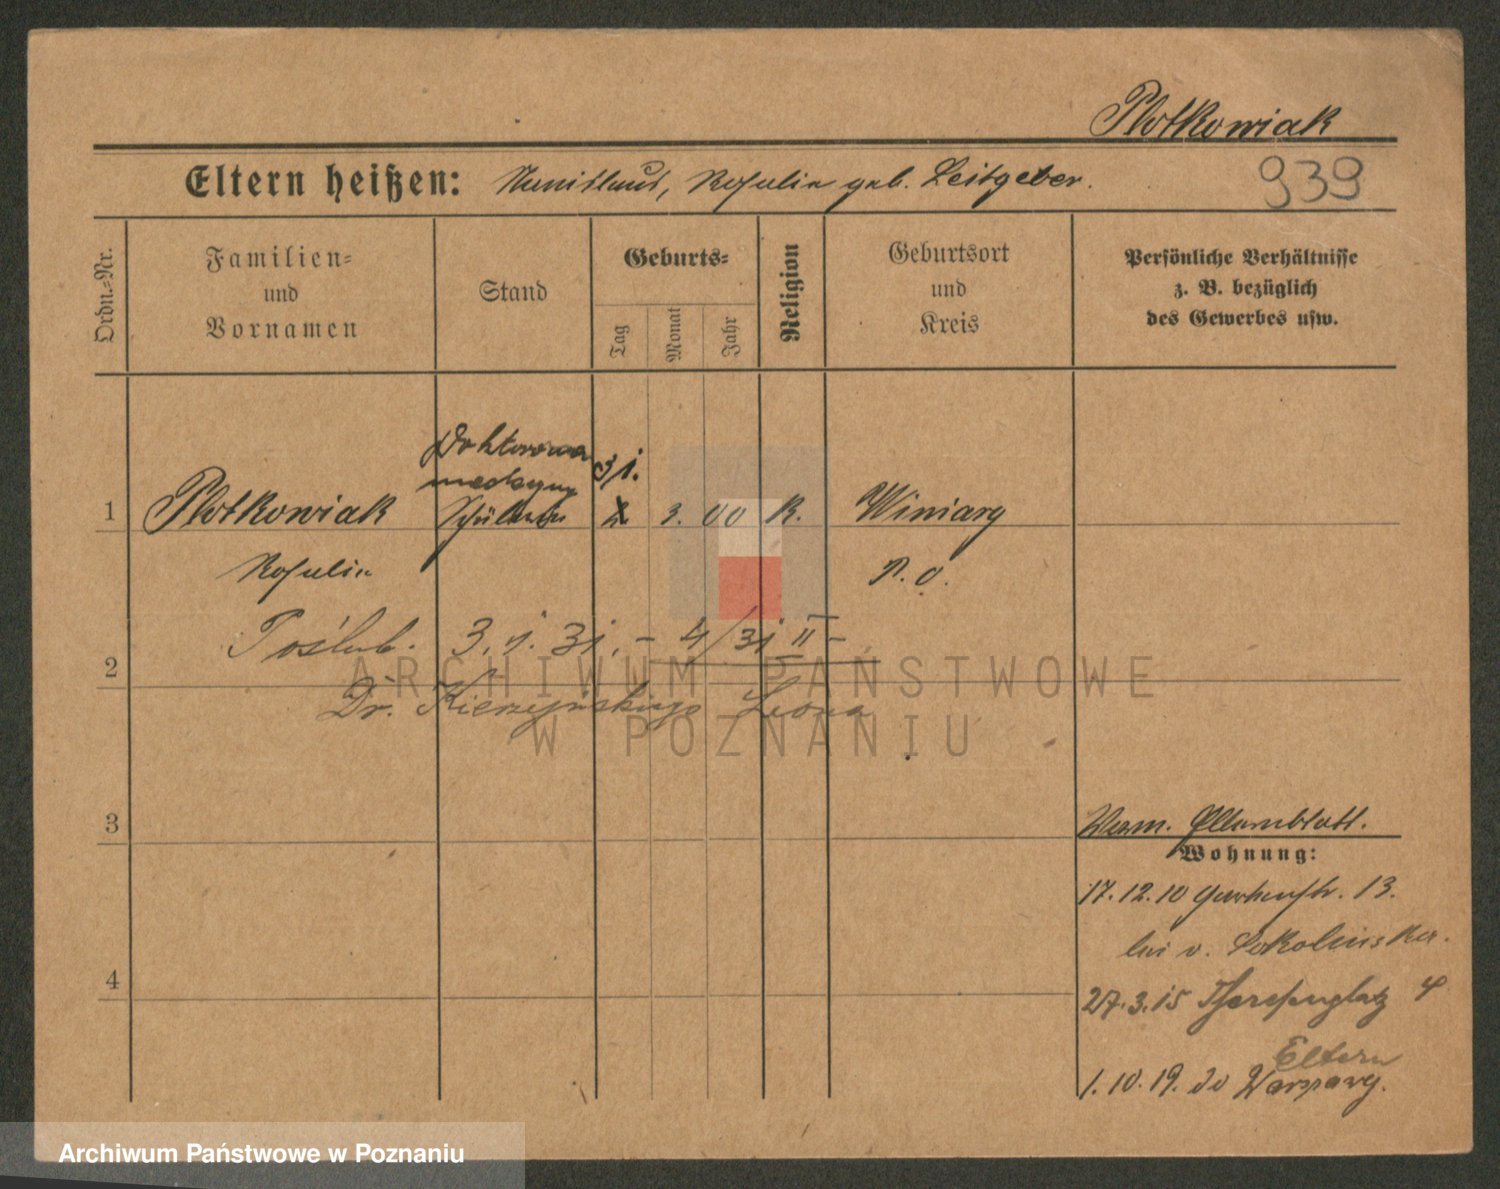 Plotkowiak
Eltern heißen: Stanislaus, Rosalie geb. Leitgeber.
939
Ordn.-Nr.
Familien-
und
Vornamen
Stand
Geburts-
Tag
Monat
Jahr
Religion
Geburtsort
und
Kreis
Persönliche Verhältnisse
z. B. bezüglich
des Gewerbes usw.
Doktorowa
medycyny
31.
1 Plotkowiak Schülerin 3. 00 K. Winiary
Rosalie P. O.
Poślub. 3. 1. 31. - 4/31 II -
2
Dr. Kierzyńskiego Leona
ARCHIWUM PAŃSTWOWE
W POZNANIU
3
Elternblatt.
Wohnung:
17.12.10 Gartenstr. 13.
bei v. Sokolnicka.
4
27.3.15 Theresenplatz 4
Eltern
1.10.19. do Warszawy.
Archiwum Państwowe w Poznaniu